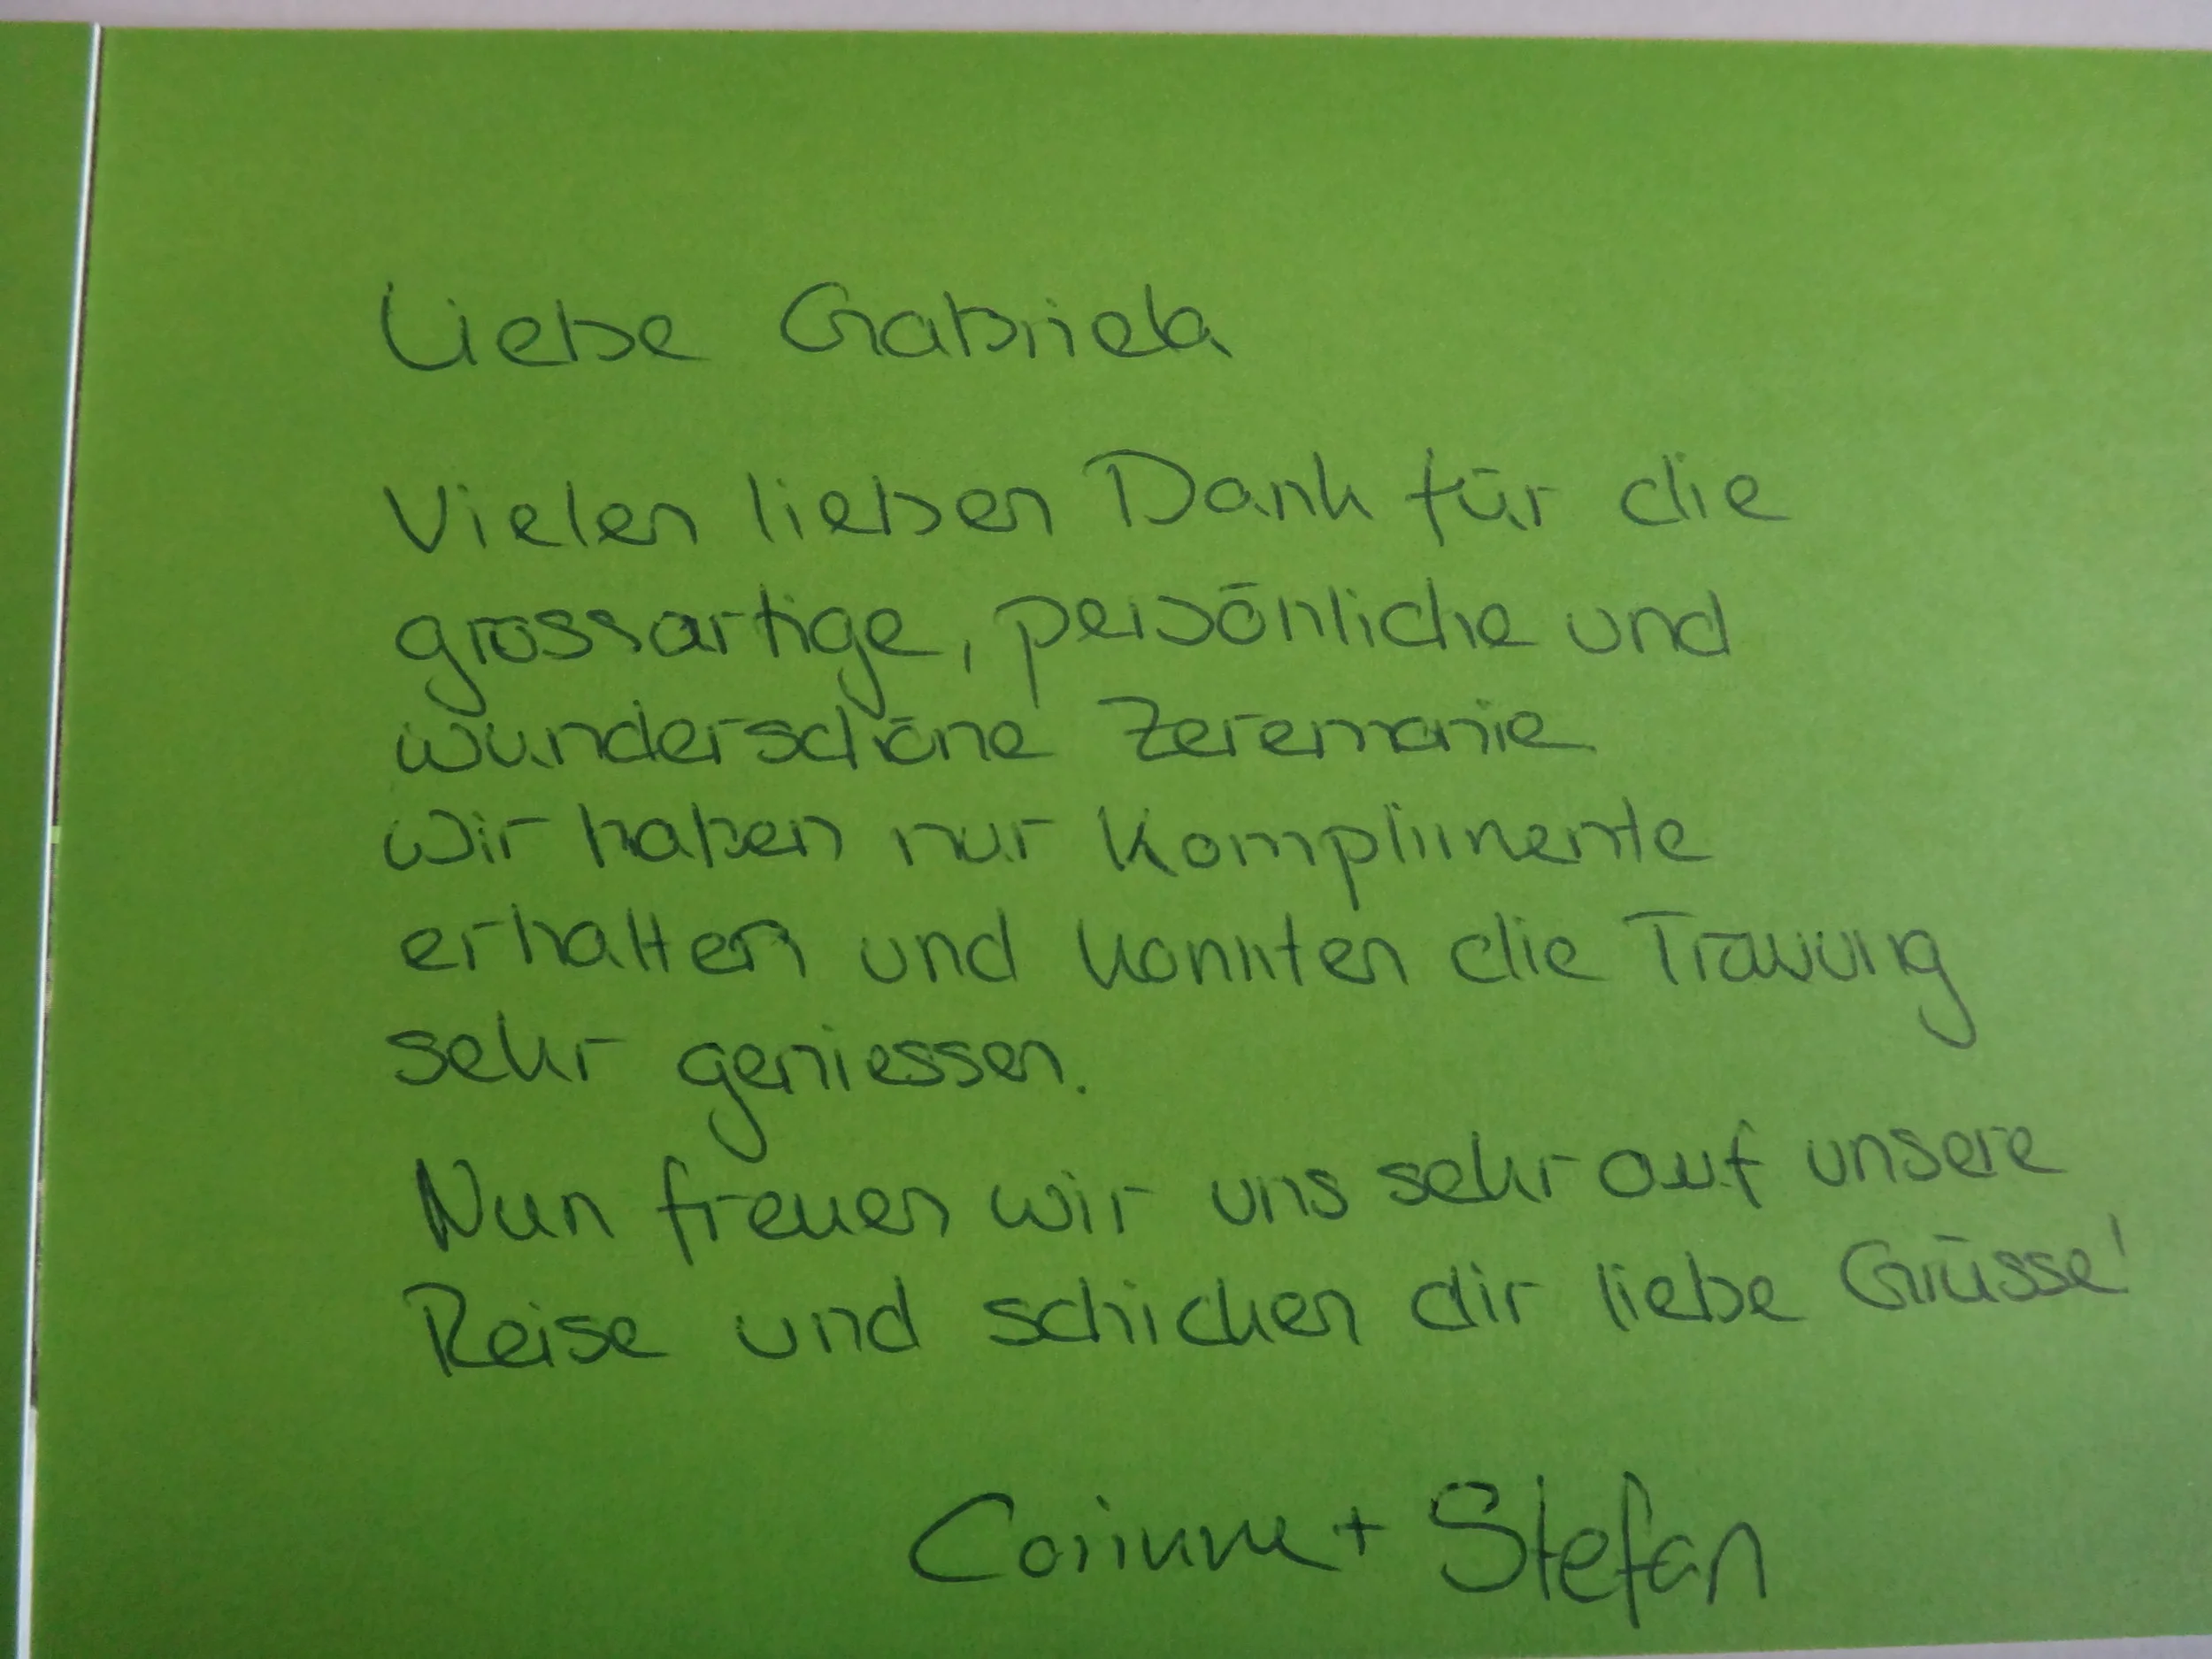 Liebe Gabriela
Vielen lieben Dank für die
grossartige, persönliche und
wunderschöne Zeremonie
Wir haben nur Komplimente
erhalten und konnten die Trauung
sehr geniessen.
Nun freuen wir uns sehr auf unsere
Reise und schicken dir liebe Grüsse!
Corinne + Stefan